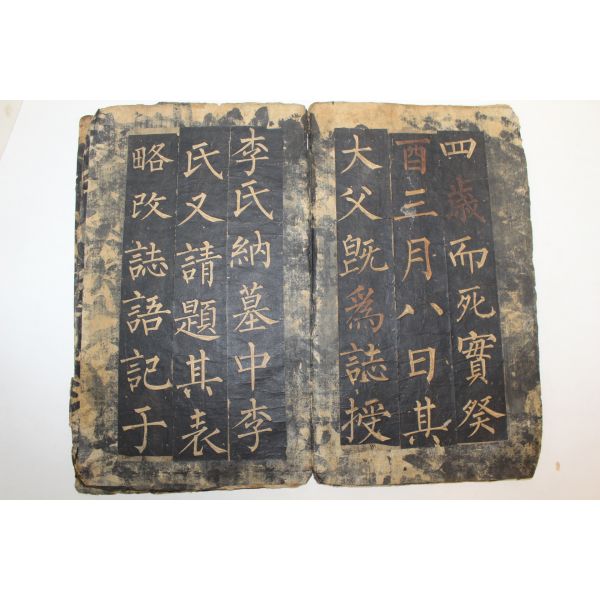 四歲而死實癸
酉三月八日其
大父旣爲誌授
李氏納墓中李
氏又請題其表
略改誌語記于